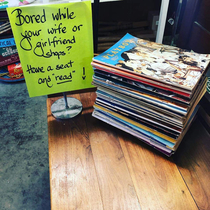 Bored while
your wife or
girlfriend
shops?
Have a seat
and "read" !